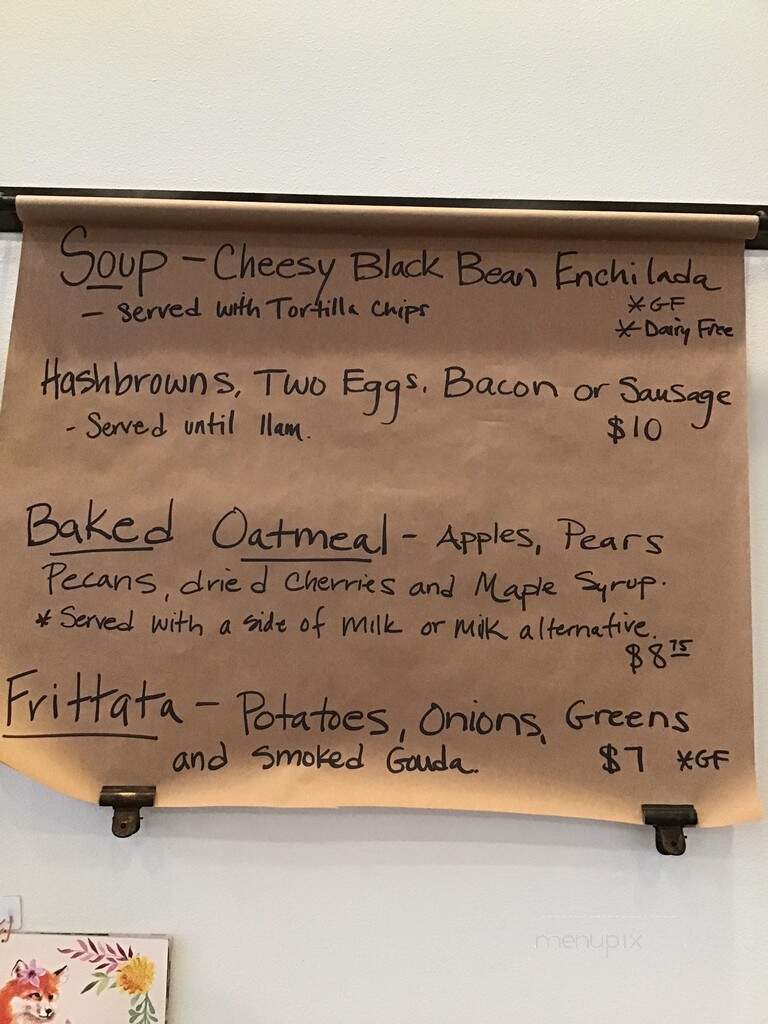 Soup - Cheesy Black Bean Enchilada
- Served with Tortilla Chips
*GF
*Dairy Free
Hashbrowns, Two Eggs, Bacon or Sausage
- Served until 11am.
$10
Baked Oatmeal - Apples, Pears
Pecans, dried Cherries and Maple Syrup.
*Served with a side of Milk or Milk alternative.
$8.75
Frittata - Potatoes, Onions, Greens
and Smoked Gouda. $7 *GF
menupix